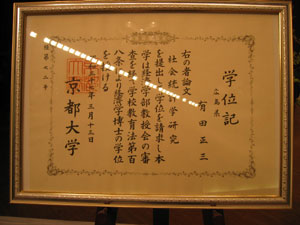 学位記
広島県
有田正三
右の者論文
社会統計学研究
を提出し学位を請求し本
学は経済学部教授会の審
査を経て学校教育法第百
八条により経済学博士の学位
を授ける
三十六年三月十三日
京都大学